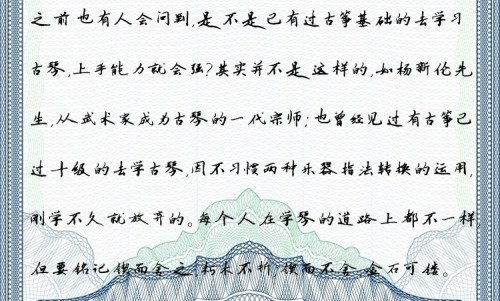 之前也有人会问到,是不是已有过古筝基础的去学习
古琴,上手能力就会强?其实并不是这样的,如杨新伦先
生,从武术家成为古琴的一代宗师;也曾经见过有古筝已
过十级的去学古琴,因不习惯两种乐器指法转换的运用,
刚学不久就放弃的。每个人在学琴的道路上都不一样,
但要铭记锲而舍之,朽木不折,锲而不舍,金石可镂。